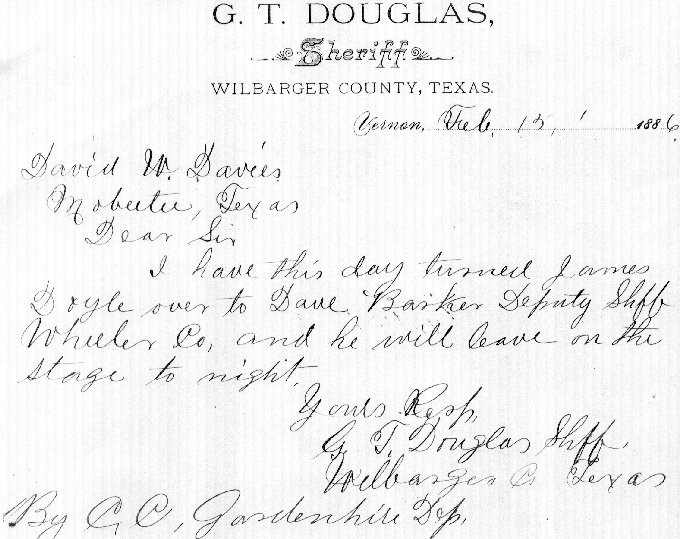 G. T. DOUGLAS,
Sheriff
WILBARGER COUNTY, TEXAS.
Vernon, Feb. 15, 1886.
David W. Davies
Mobeetie, Texas
Dear Sir
I have this day turned James
Doyle over to Dave Barker Deputy Shff
Wheeler Co, and he will leave on the
stage to night.
Yours Resp,
G. T. Douglas Shff.
Wilbarger C. Texas
By C. C, Gardenhire Dep.